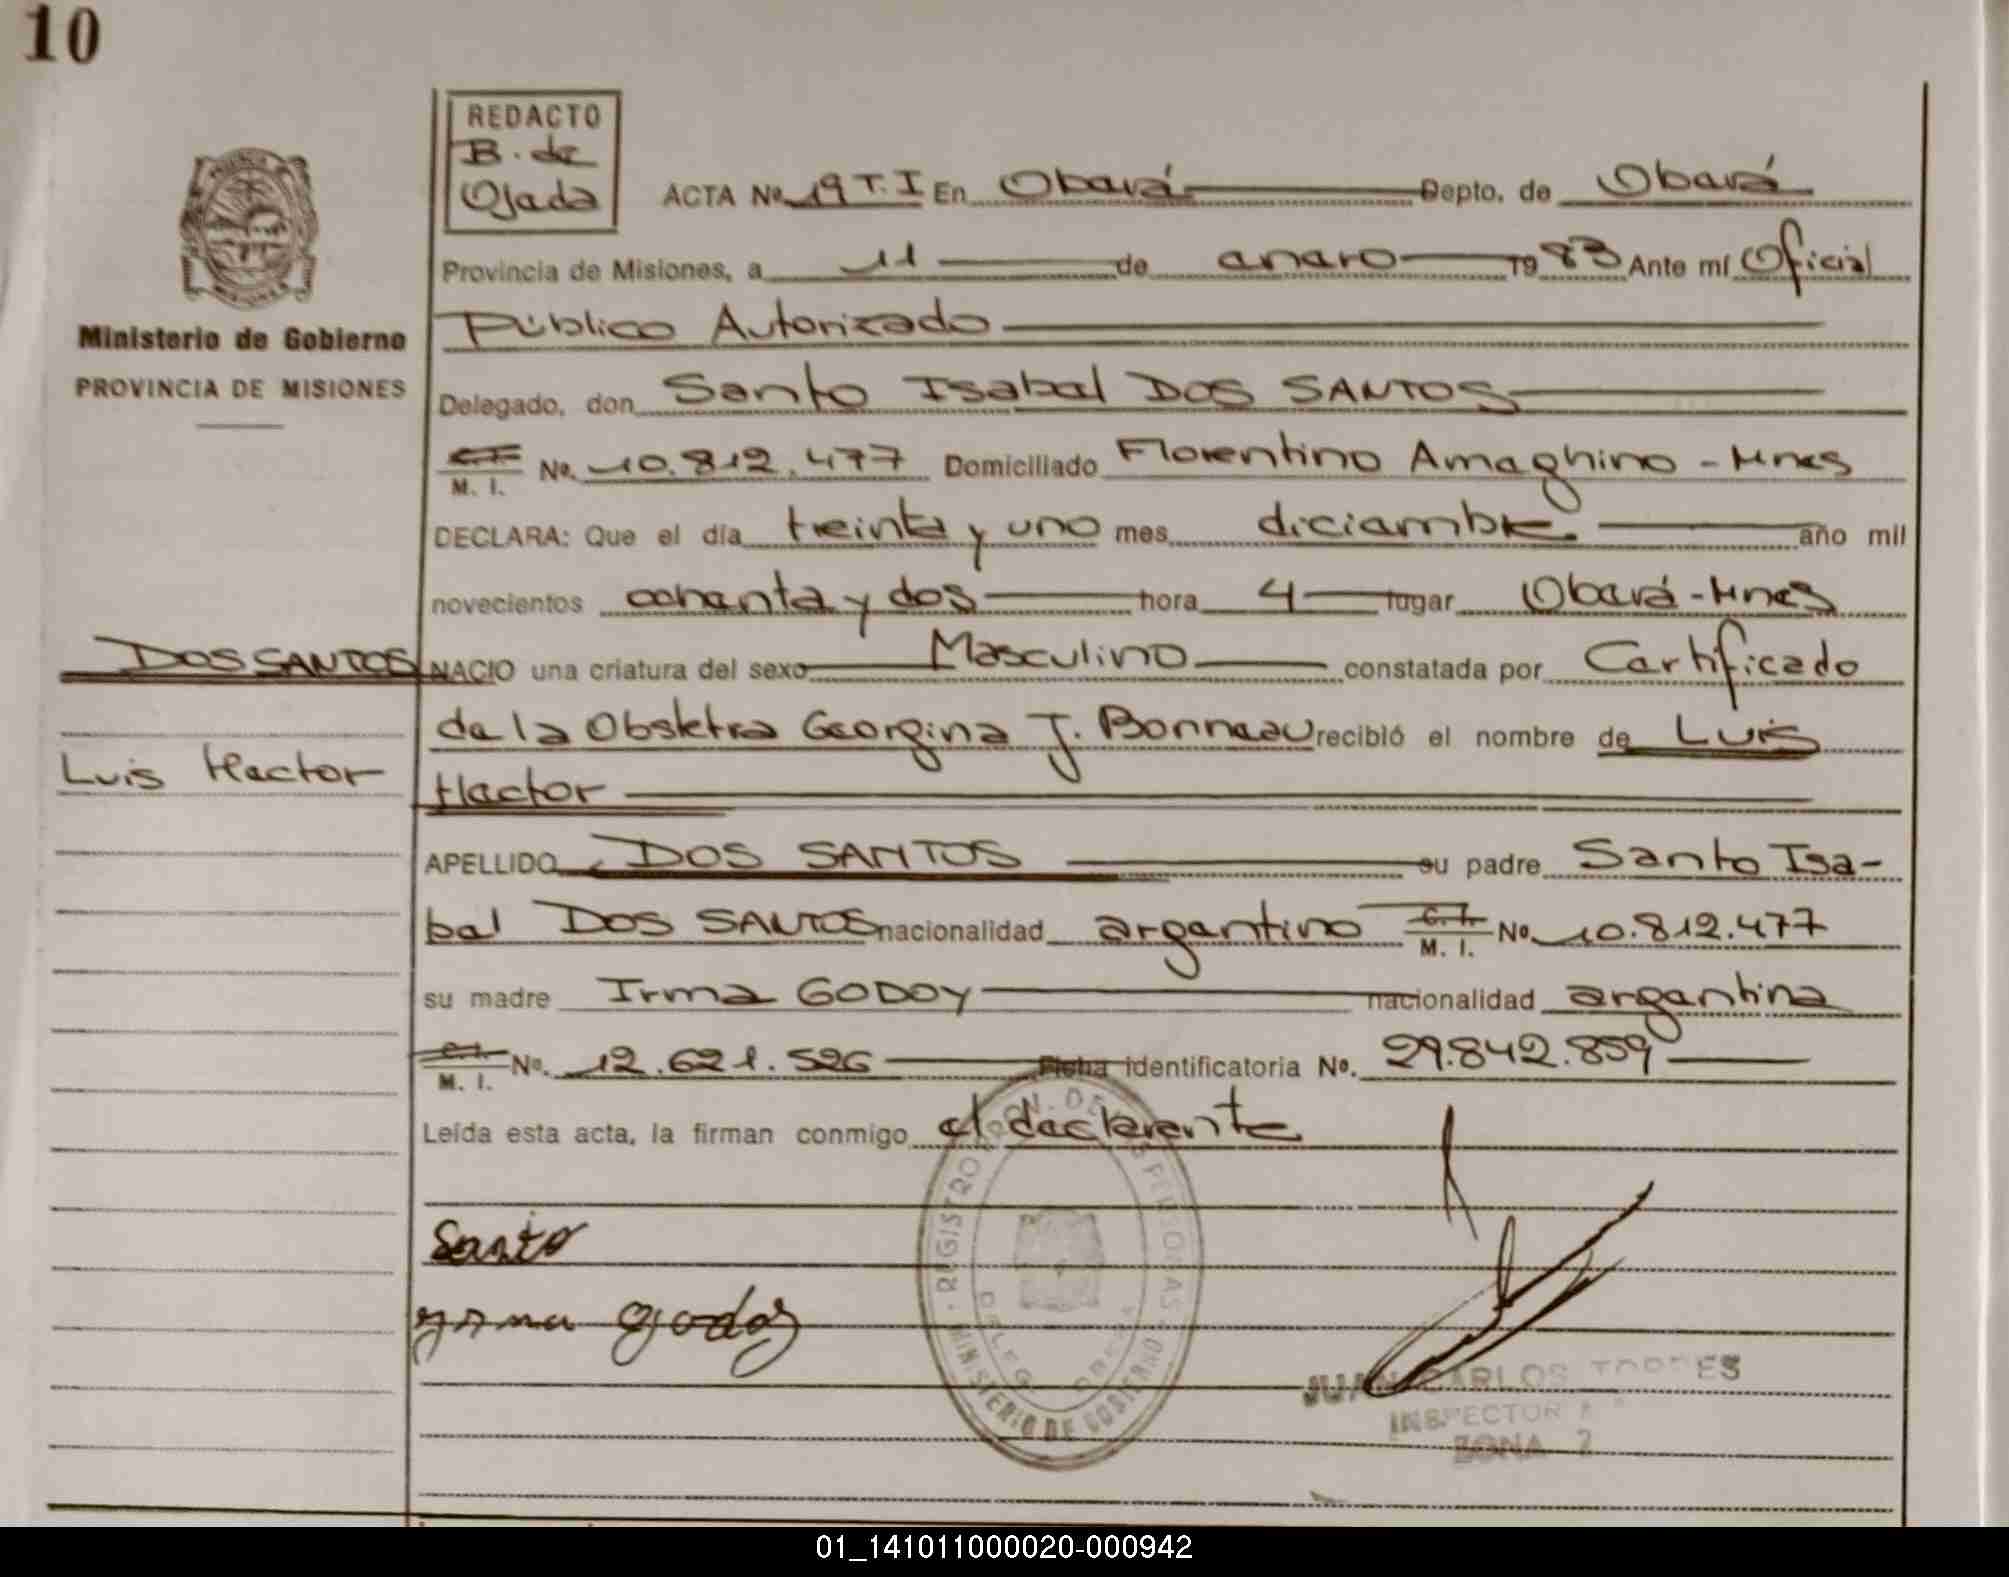 10
REDACTO
B. de
Ojeda
ACTA No. 19 T. I En Oberá Depto. de Oberá
Provincia de Misiones, a 11 de enero 1983 Ante mí Oficial
Público Autorizado
Ministerio de Gobierno
PROVINCIA DE MISIONES
Delegado, don Santo Isabel DOS SANTOS
C.I. M. I. No. 10.812.477 Domiciliado Florentino Ameghino - Mnes
DECLARA: Que el día treinta y uno mes diciembre. año mil
novecientos ochenta y dos hora 4 lugar Oberá - Mnes
DOS SANTOS
NACIO una criatura del sexo Masculino constatada por Certificado
de la Obstetra Georgina J. Bonneau recibió el nombre de Luis
Luis Hector
Hector
APELLIDO DOS SANTOS su padre Santo Isa-
bel DOS SANTOS nacionalidad argentino C.I. M. I. No. 10.812.477
su madre Irma GODOY nacionalidad argentina
C.I. M. I. No. 12.621.526 Ficha identificatoria No. 29.842.859
Leída esta acta, la firman conmigo el declarente
Santo
yrma godoy
REGISTRO DE PERSONAS
MINISTERIO DE GOBIERNO
DELEG. OBERA
JUAN CARLOS TORRES
INSPECTOR
ZONA 2
01_141011000020-000942